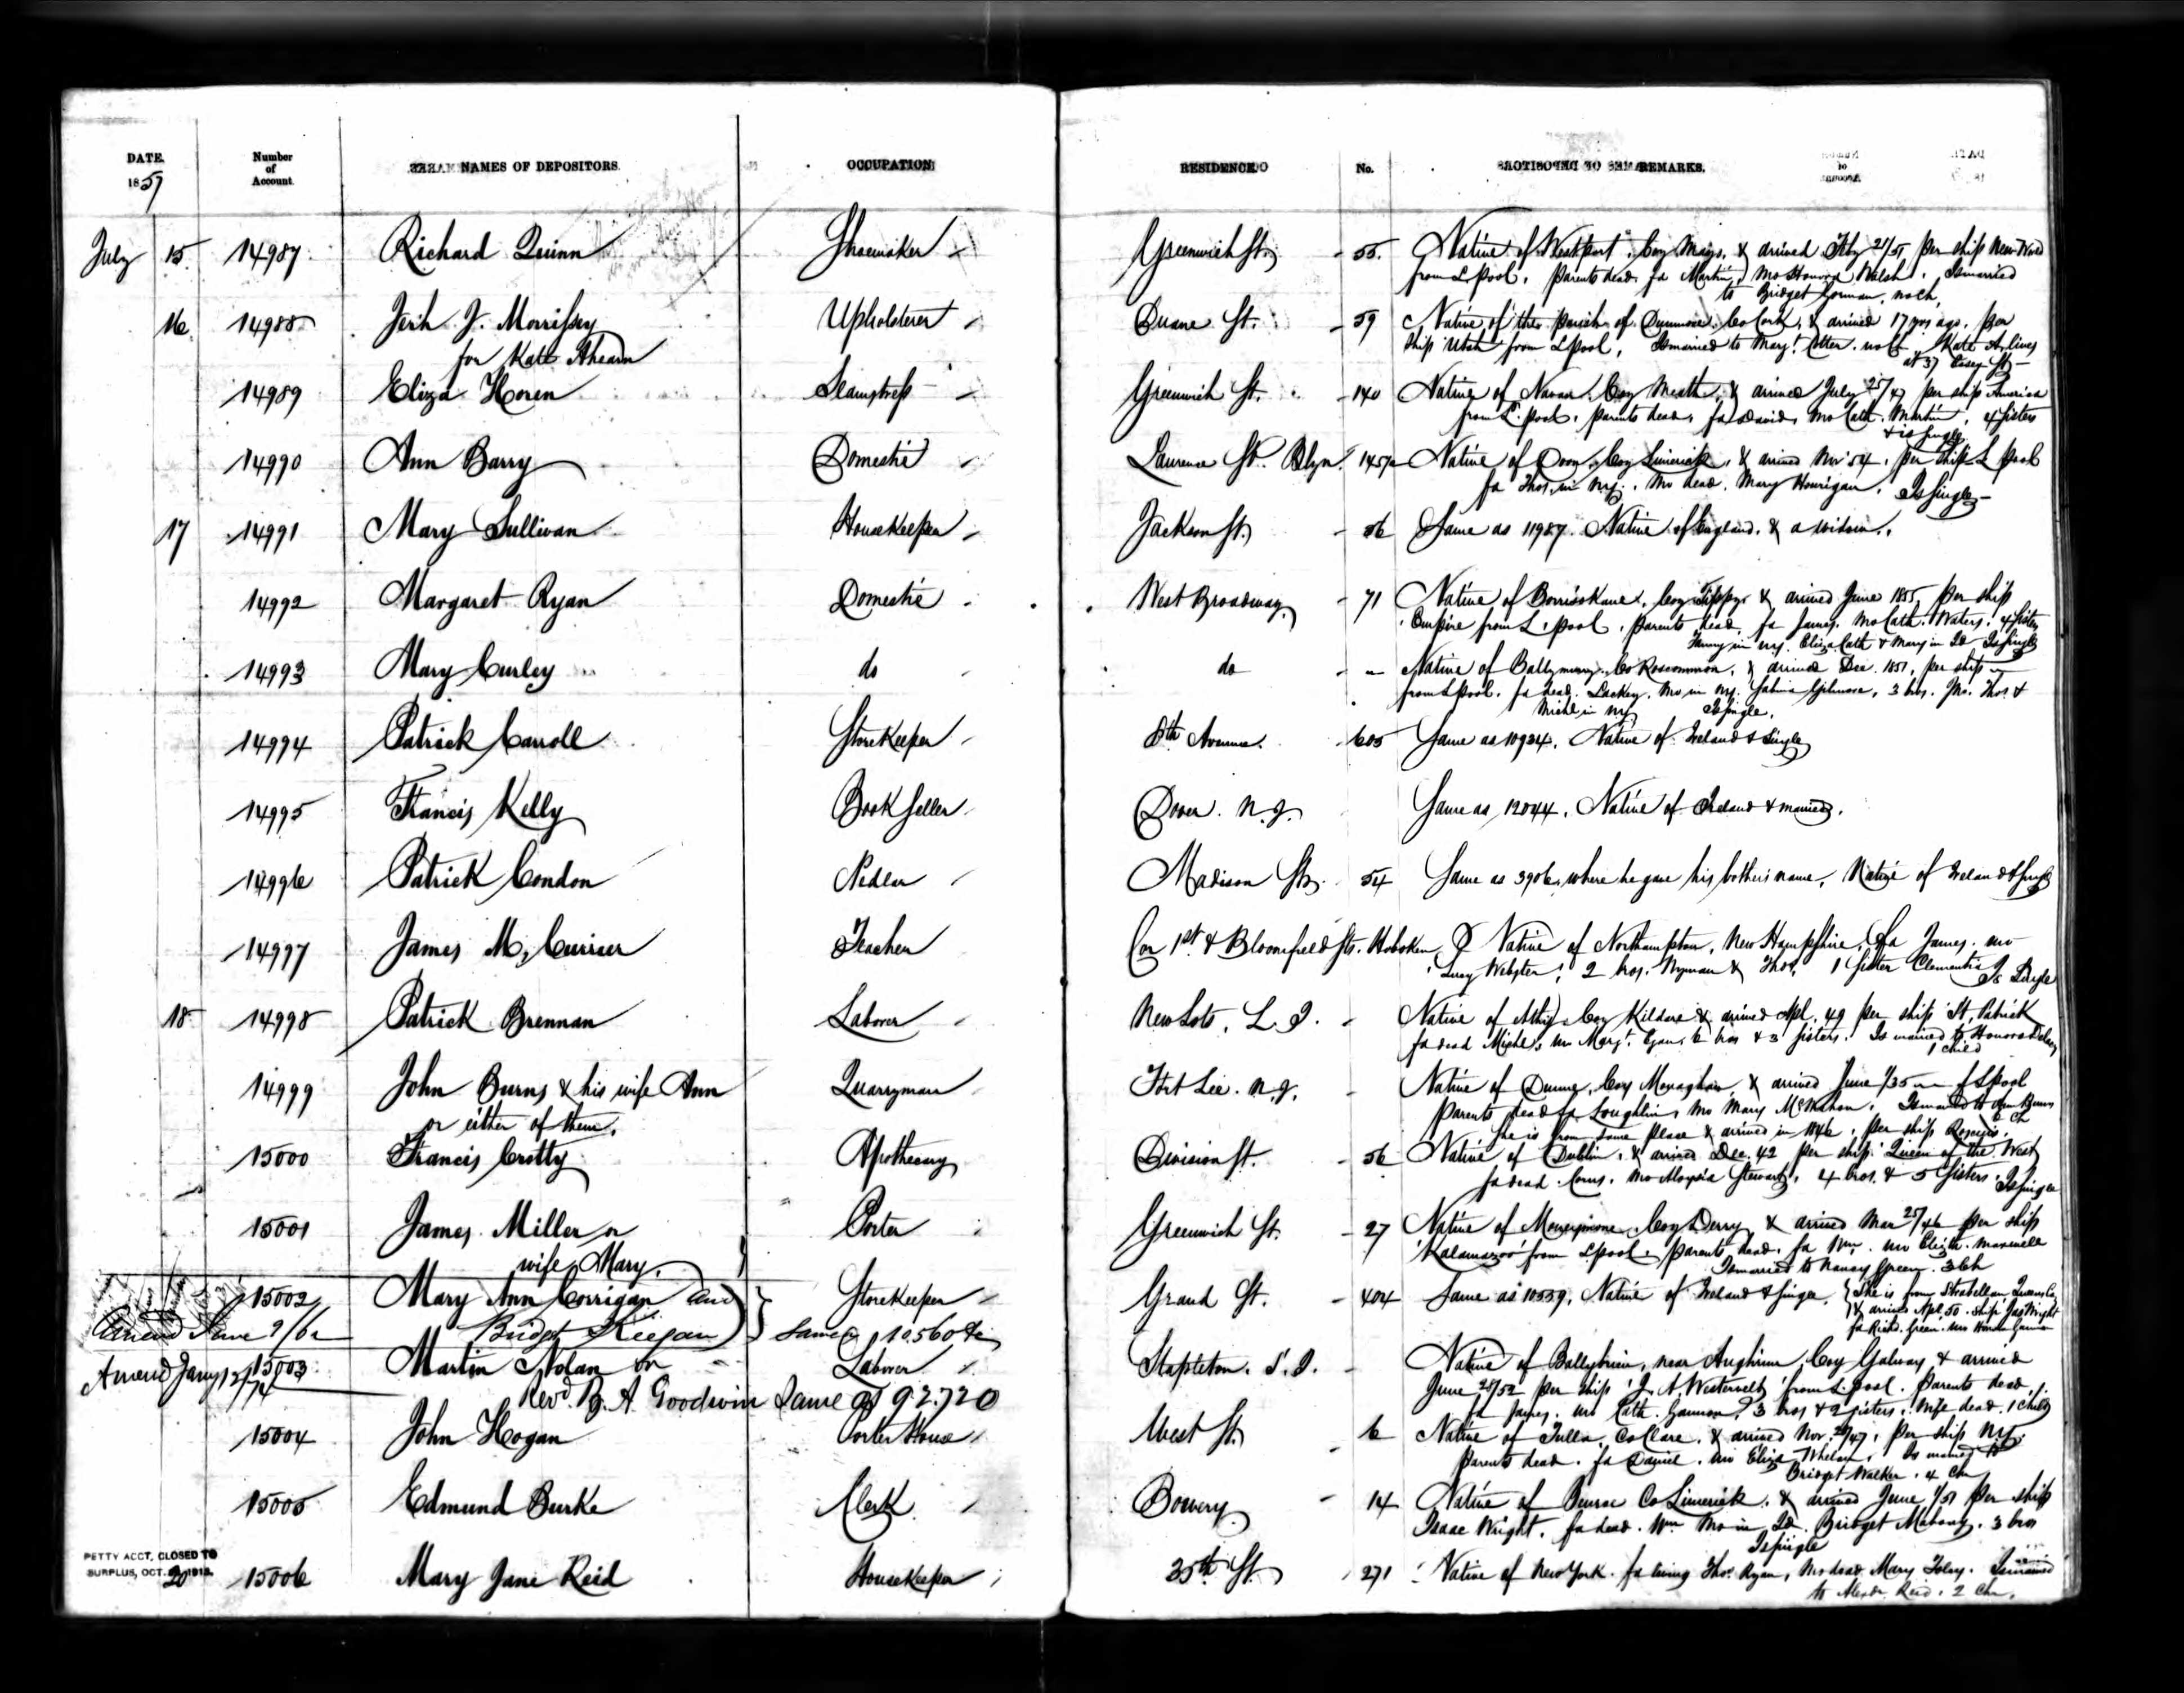 DATE. Number of Account. NAMES OF DEPOSITORS. OCCUPATION RESIDENCE No. REMARKS.
1857
July 15 14987 Richard Quinn Shoemaker Greenwich St. 55. Native of Westport, Coy Mayo, & arrived Feby 21/51 per ship New World
from L.pool, parents dead, fa Martin, mo Honora Walsh. Is married
to Bridget Gorman, no ch,
16 14988 Jerh J. Morrissey Upholsterer Duane St. 59 Native of the parish of Co Cork, & arrived 17 yrs ago, per
for Kate Ahearn ship Utah from Lpool, Is married to Margt Cotter. no ch. Kate A. lives
at 37 Vesey St
14989 Eliza Horen Seamstress Greenwich St. 140 Native of Navan, Coy Meath, & arrived July 25/47 per ship America
from L.pool, parents dead, fa David, mo Cath. Martin, 4 sisters
& is single
14990 Ann Barry Domestic Laurence St. Blyn. 145½ Native of Doon, Coy Limerick, & arrived Nov '54, per ship L pool
fa Thos. in NY. mo dead. Mary Hourigan. Is single
17 14991 Mary Sullivan Housekeeper Jackson St. 56 Same as 11987. Native of England. & a widow.
14992 Margaret Ryan Domestic West Broadway 71 Native of Borrisokane, Coy Tippy & arrived June 1855, per ship
Empire from L.pool, parents dead, fa James, mo Cath. Waters. 4 sisters
Fanny in NY. Eliza, Cath & Mary in Id Is single
14993 Mary Curley do do " Native of Co Roscommon, & arrived Dec. 1851, per ship —
from Lpool. fa dead. Lackey. mo in NY. Sabina Gilmore, 3 bros. Jno. Thos. &
Michl in NY, Is single.
14994 Patrick Carroll Storekeeper 8th Avenue. 605 Same as 10934. Native of Ireland & Single
14995 Francis Kelly Book Seller Dover. N.J. Same as 12044. Native of Ireland & married.
14996 Patrick Condon Pedlar Madison St. 54 Same as 3906, where he gave his bother's name, Native of Ireland & Single
14997 James M. Currier Teacher Cor 1st & Bloomfield Sts. Hoboken Native of Northampton, New Hampshire, fa James. mo
Lucy Webster, 2 bros. Wyman & Thos, 1 sister Clementia Is Single
18 14998 Patrick Brennan Laborer New Lots, L.I. Native of Athy, Coy Kildare & arrived Apl. 49 per ship St. Patrick
fa dead Michl, mo Margt. Egan, 6 bros & 3 sisters. Is married to Honora
1 child
14999 John Burns & his wife Ann Quarryman Fort Lee. N.J. Native of Coy Monaghan, & arrived June 1/35 — f Lpool
or either of them. parents dead fa Loughlin, mo Mary McMahon. Is married to Ann Burns
She is from same place & arrived in 1846, per ship Roscius. ch
15000 Francis Crotty Apothecary Division St. 56 Native of Dublin, & arrived Dec. 42 per ship Queen of the West
fa dead Corns, mo Aloysia Stewart, 4 bros. & 5 sisters. Is single
15001 James Miller or Porter Greenwich St. 27 Native of Coy Derry & arrived Mar 25/46 per ship
'Kalamazoo' from Lpool. parents dead. fa Wm. mo Elizth. Maxwell
wife Mary. Is married to Nancy Green. 3 ch
15002 Mary Ann Corrigan and Storekeeper Grand St. 404 Same as 10559, Native of Ireland & Single. She is from Strabellan Queens Co,
Amend June 9/62 Bridget Keegan Same @ 10.560 & arrived Apl 50. ship Jas Wright
fa Richd. Green. mo
Amend Jany 12/74 15003 Martin Nolan or Laborer Stapleton. S.I. Native of near Aughrim, Coy Galway & arrived
Revd. B. A. Goodwin Same as 92.720 June 28/52 per ship 'J. A. Westervelt' from L.pool. parents dead.
fa James. mo Cath. Gannon, 3 bros & 2 sisters. Wife dead. 1 child
15004 John Hogan Porter House West St. 6 Native of Tulla, Co Clare. & arrived Nov. 20/47, per ship NY.
parents dead. fa Daniel. mo Eliza Whelan. Is married to
Bridget Walker. 4 chn
15005 Edmund Burke Clerk Bowery 14 Native of Co Limerick. & arrived June 1/51 per ship
Isaac Wright. fa dead. Wm mo in Id. Bridget Mahony. 3 bros
Is single
PETTY ACCT. CLOSED TO
SURPLUS, OCT. 1913.
20 15006 Mary Jane Reid Housekeeper 35th St. 271 Native of New York. fa living Thos. Ryan, Mo dead Mary Foley. Is married
to Alexr. Reid. 2 chn.